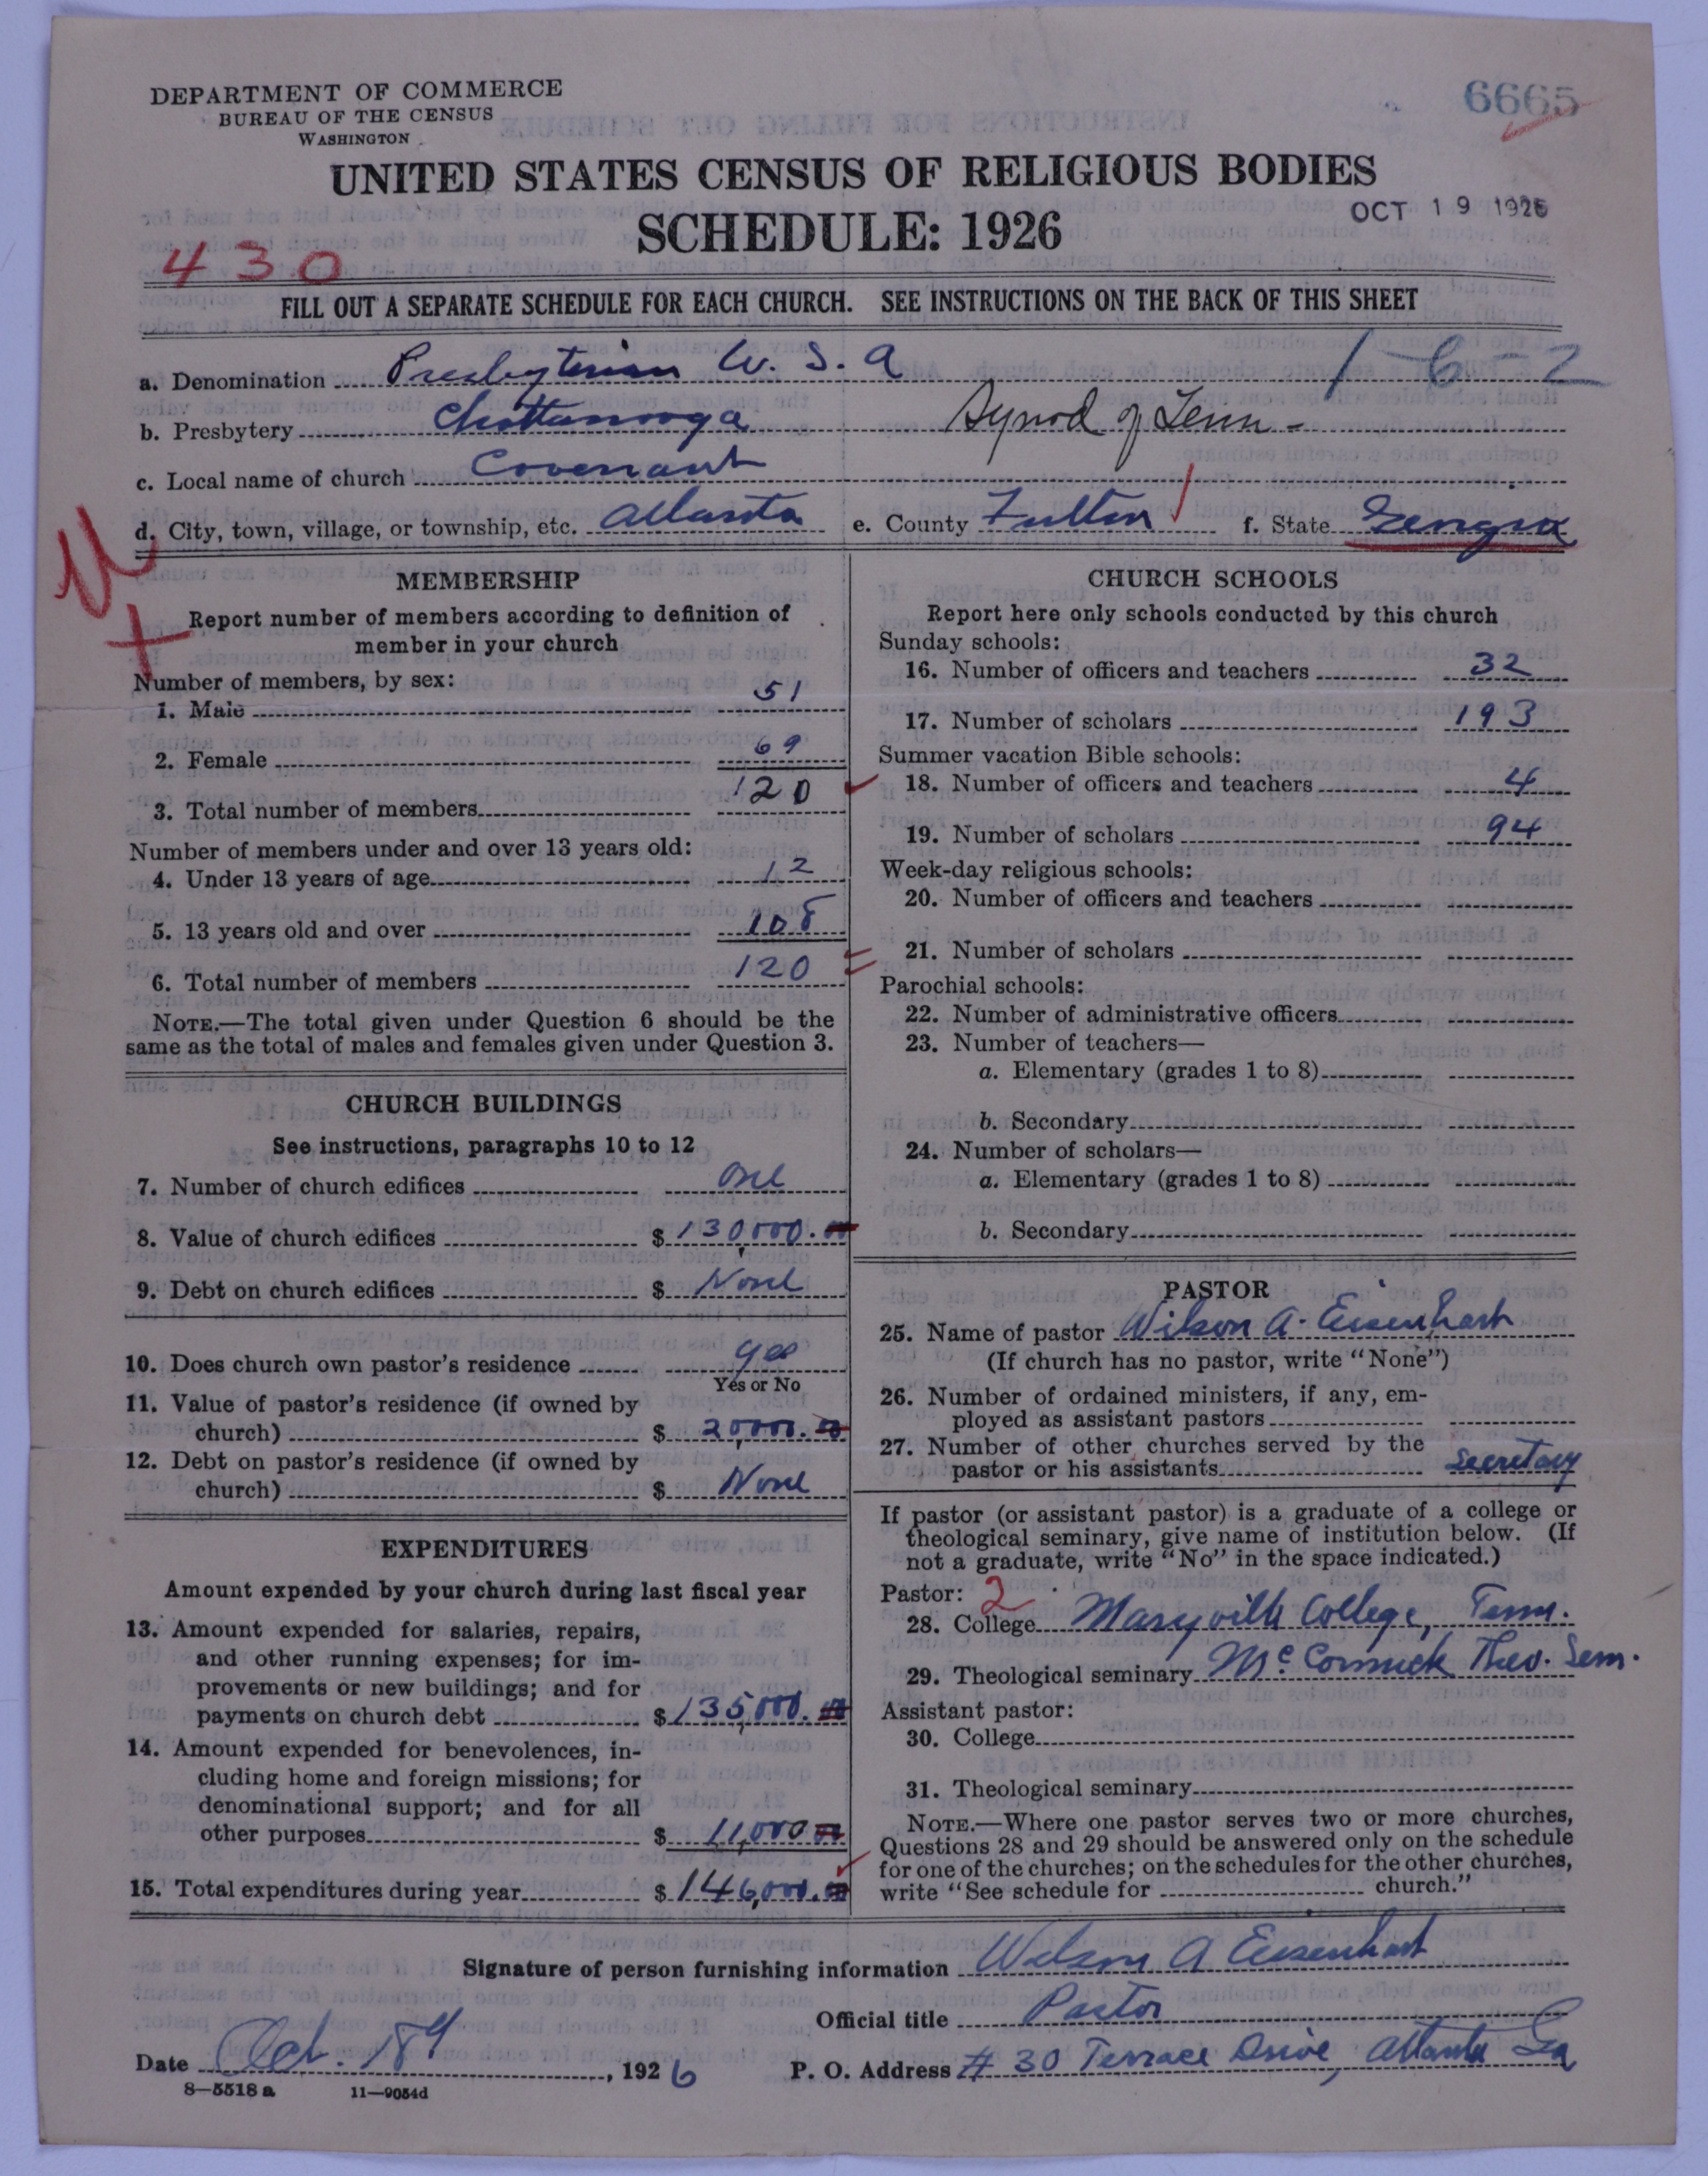 DEPARTMENT OF COMMERCE
BUREAU OF THE CENSUS
WASHINGTON
6665
UNITED STATES CENSUS OF RELIGIOUS BODIES
SCHEDULE: 1926
OCT 19 1926
430
FILL OUT A SEPARATE SCHEDULE FOR EACH CHURCH. SEE INSTRUCTIONS ON THE BACK OF THIS SHEET
a. Denomination Presbyterian U. S. A 1-6-2
b. Presbytery Chattanooga Synod of Tenn-
c. Local name of church Covenant
d. City, town, village, or township, etc. Atlanta e. County Fulton f. State Georgia
MEMBERSHIP
Report number of members according to definition of
member in your church
Number of members, by sex:
1. Male 51
2. Female 69
3. Total number of members 120
Number of members under and over 13 years old:
4. Under 13 years of age 12
5. 13 years old and over 108
6. Total number of members 120
NOTE.—The total given under Question 6 should be the
same as the total of males and females given under Question 3.
CHURCH BUILDINGS
See instructions, paragraphs 10 to 12
7. Number of church edifices One
8. Value of church edifices $ 130,000.00
9. Debt on church edifices $ None
10. Does church own pastor's residence yes
Yes or No
11. Value of pastor's residence (if owned by
church) $ 20,000.00
12. Debt on pastor's residence (if owned by
church) $ None
EXPENDITURES
Amount expended by your church during last fiscal year
13. Amount expended for salaries, repairs,
and other running expenses; for im-
provements or new buildings; and for
payments on church debt $ 135,000.00
14. Amount expended for benevolences, in-
cluding home and foreign missions; for
denominational support; and for all
other purposes $ 11,000.00
15. Total expenditures during year $ 146,000.00
CHURCH SCHOOLS
Report here only schools conducted by this church
Sunday schools:
16. Number of officers and teachers 32
17. Number of scholars 193
Summer vacation Bible schools:
18. Number of officers and teachers 4
19. Number of scholars 94
Week-day religious schools:
20. Number of officers and teachers
21. Number of scholars
Parochial schools:
22. Number of administrative officers
23. Number of teachers—
a. Elementary (grades 1 to 8)
b. Secondary
24. Number of scholars—
a. Elementary (grades 1 to 8)
b. Secondary
PASTOR
25. Name of pastor Wilson A. Eisenhart
(If church has no pastor, write "None")
26. Number of ordained ministers, if any, em-
ployed as assistant pastors
27. Number of other churches served by the
pastor or his assistants Secretary
If pastor (or assistant pastor) is a graduate of a college or
theological seminary, give name of institution below. (If
not a graduate, write "No" in the space indicated.)
Pastor: 2
28. College Maryville College, Tenn.
29. Theological seminary McCormick Theo. Sem.
Assistant pastor:
30. College
31. Theological seminary
NOTE.—Where one pastor serves two or more churches,
Questions 28 and 29 should be answered only on the schedule
for one of the churches; on the schedules for the other churches,
write "See schedule for church."
Signature of person furnishing information Wilson A Eisenhart
Official title Pastor
Date Oct. 18th, 1926 P. O. Address # 30 Terrace Drive, Atlanta Ga
8—5518 a 11—9054d